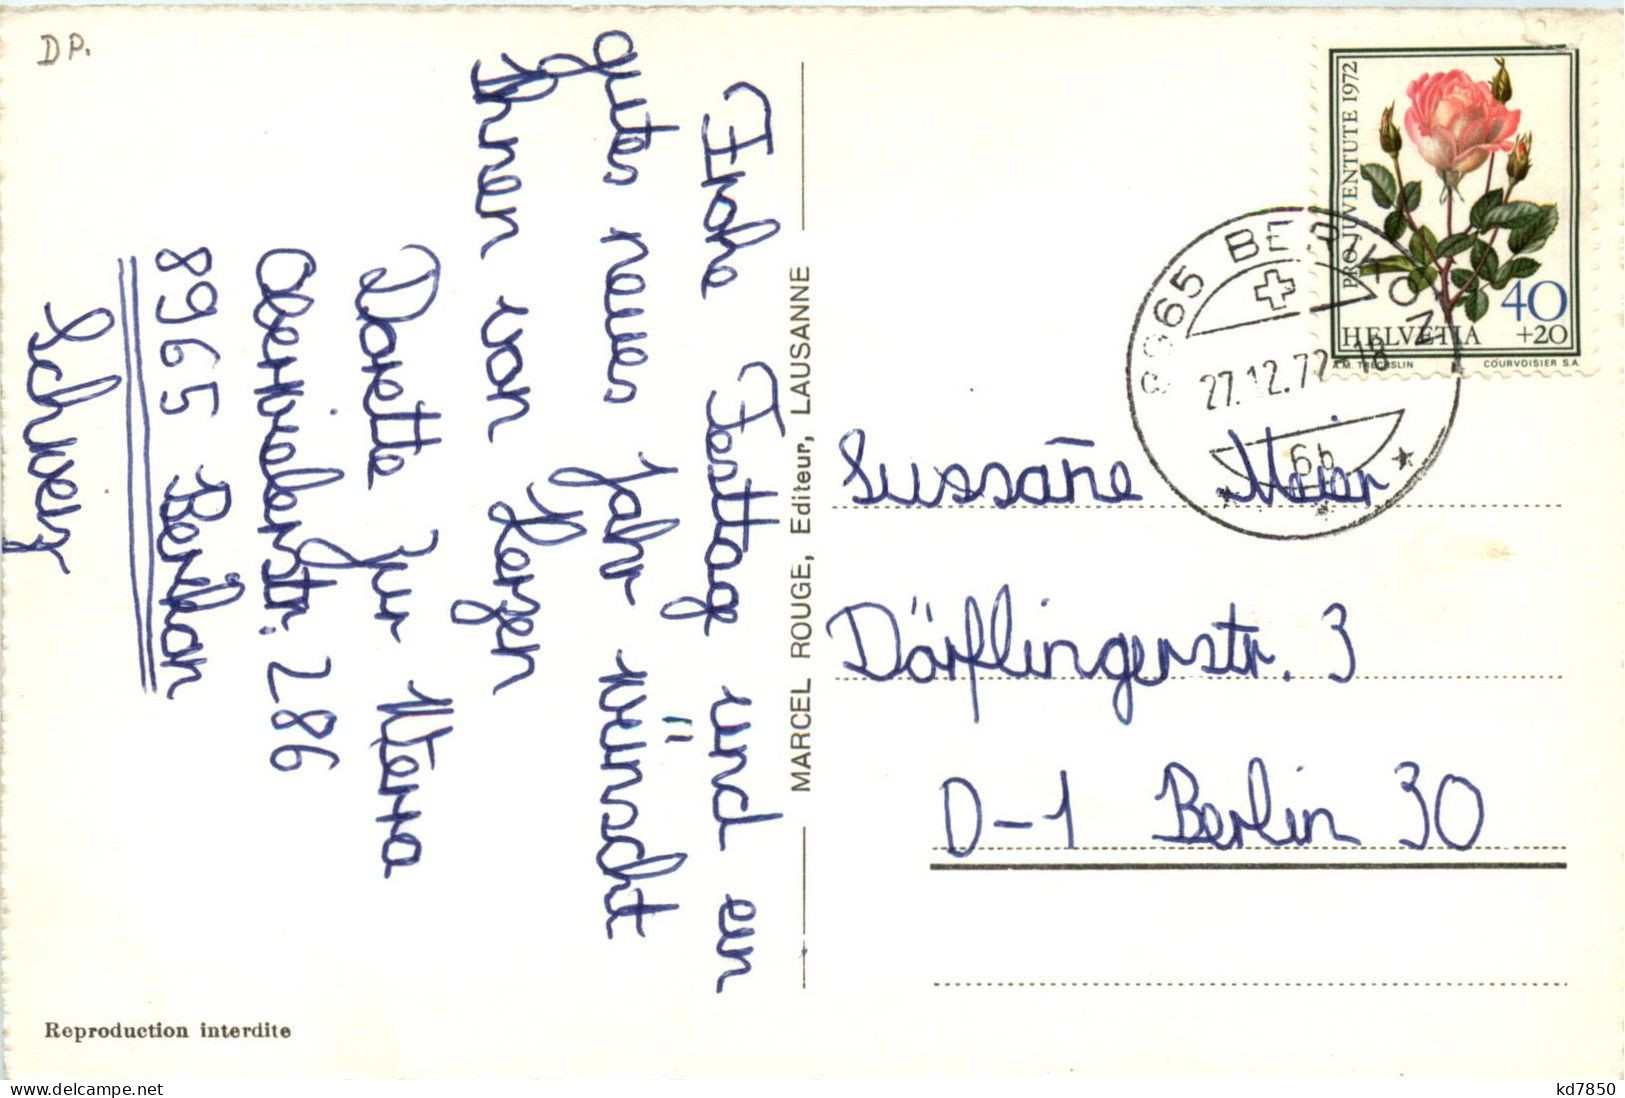 DP.
Frohe Festtage und ein
gutes neues Jahr wünscht
Ihnen von Herzen
Dorette Zur
Oberwilerstr. 286
8965 Berikon
Schweiz
Reproduction interdite
MARCEL ROUGE, Editeur, LAUSANNE
PRO JUVENTUTE 1972
40
+20
HELVETIA
A.M. TRECHSLIN COURVOISIER S.A.
8965 BERIKON 2
27.12.72-18
6b
Sussañe Meier
Dörflingerstr. 3
D-1 Berlin 30
delcampe.net
kd7850